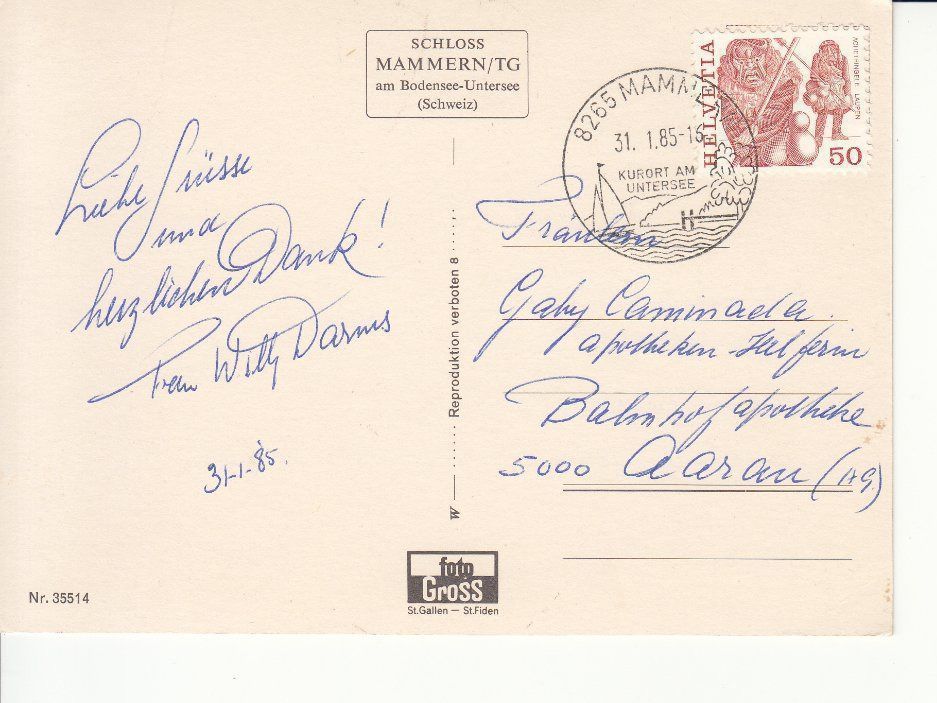 SCHLOSS
MAMMERN/TG
am Bodensee-Untersee
(Schweiz)
8265 MAMMERN
31. 1.85-16
KURORT AM
UNTERSEE
HELVETIA
50
Liebe Grüsse
und
herzlichen Dank!
Frau Willy Darms
31-1-85.
Fräulein
Gaby Caminada.
apotheken-Helferin
Bahnhofapotheke
5000 Aarau (AG)
Reproduktion verboten 8
W
foto
Gross
St.Gallen — St.Fiden
Nr. 35514